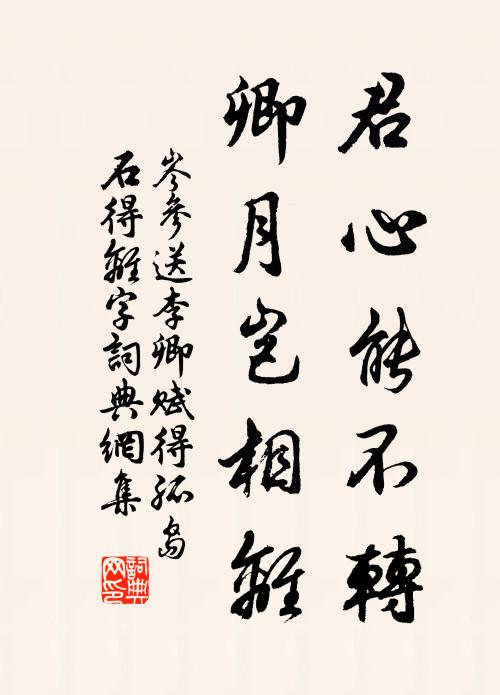 君心能不轉
卿月豈相離
岑參送李卿賦得孤島
石得離字詞典網集
詞典网印